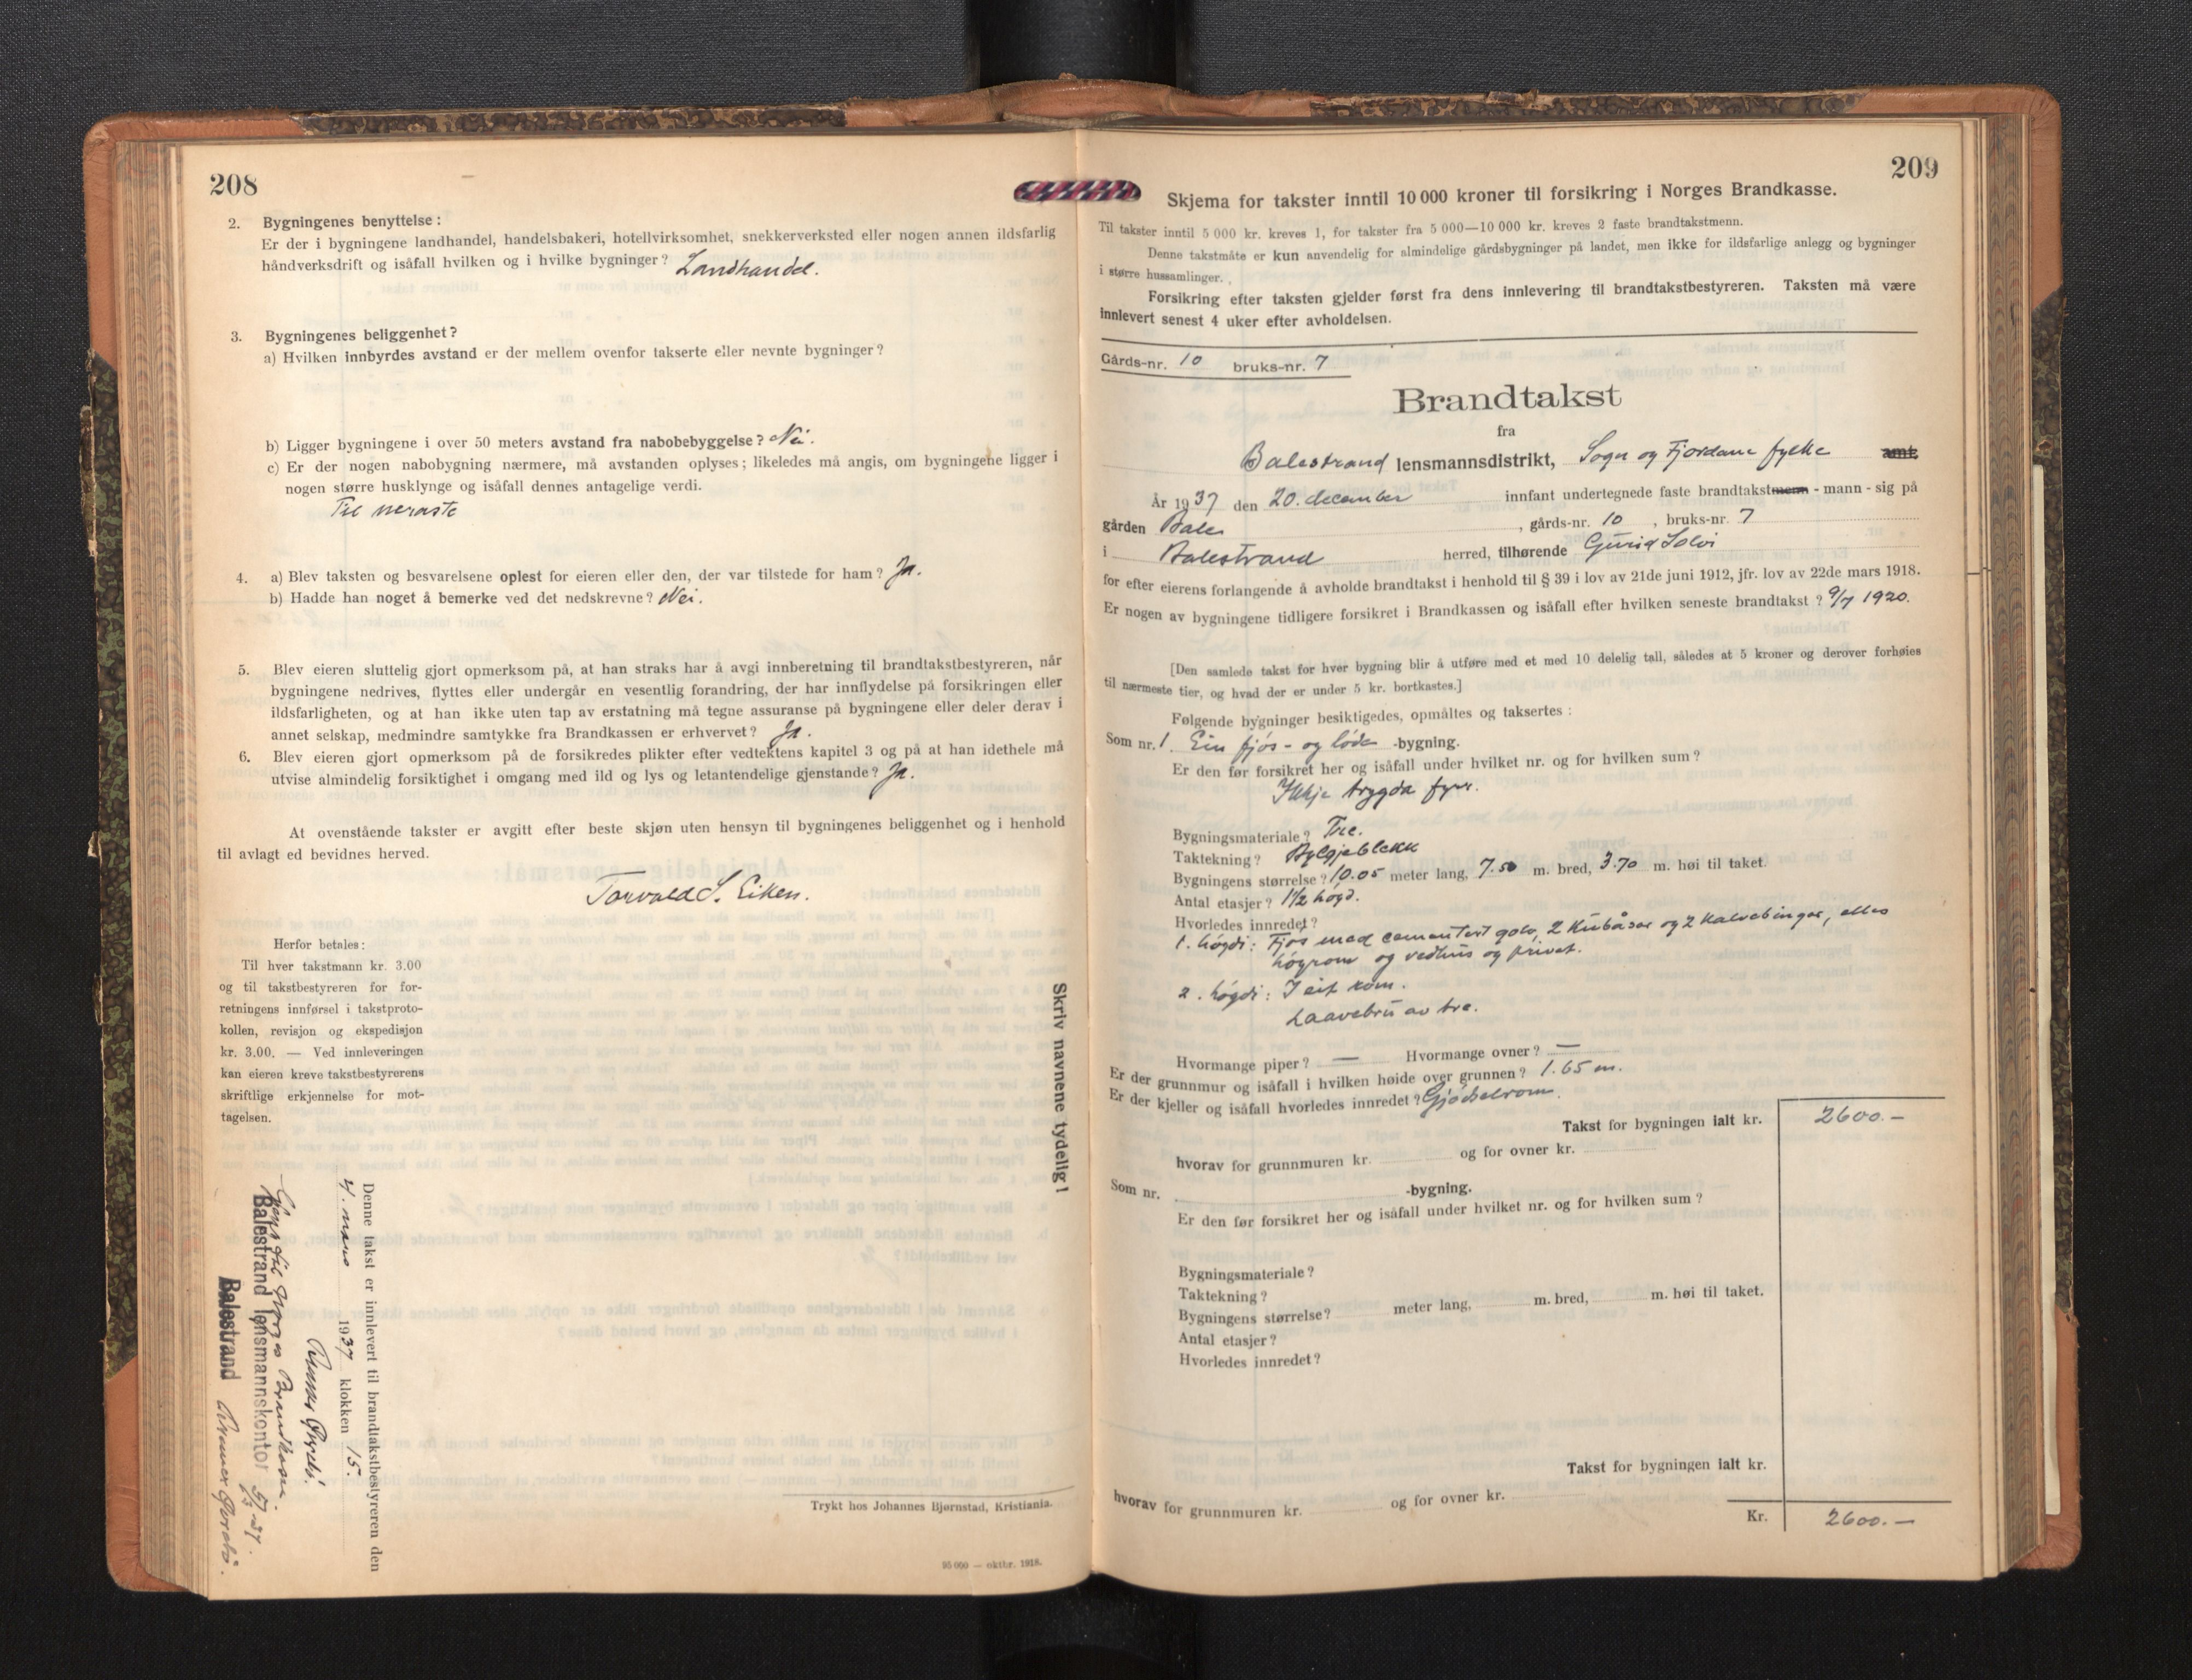 208
2. Bygningenes benyttelse:
Er der i bygningene landhandel, handelsbakeri, hotellvirksomhet, snekkerverksted eller nogen annen ildsfarlig
håndverksdrift og isåfall hvilken og i hvilke bygninger? Landhandel.
3. Bygningenes beliggenhet?
a) Hvilken innbyrdes avstand er der mellem ovenfor takserte eller nevnte bygninger?
b) Ligger bygningene i over 50 meters avstand fra nabobebyggelse? Nei.
c) Er der nogen nabobygning nærmere, må avstanden oplyses; likeledes må angis, om bygningene ligger i
nogen større husklynge og isåfall dennes antagelige verdi.
Til næraste
4. a) Blev taksten og besvarelsene oplest for eieren eller den, der var tilstede for ham? Ja.
b) Hadde han noget å bemerke ved det nedskrevne? Nei.
5. Blev eieren sluttelig gjort opmerksom på, at han straks har å avgi innberetning til brandtakstbestyreren, når
bygningene nedrives, flyttes eller undergår en vesentlig forandring, der har innflydelse på forsikringen eller
ildsfarligheten, og at han ikke uten tap av erstatning må tegne assuranse på bygningene eller deler derav i
annet selskap, medmindre samtykke fra Brandkassen er erhvervet? Ja.
6. Blev eieren gjort opmerksom på de forsikredes plikter efter vedtektens kapitel 3 og på at han idethele må
utvise almindelig forsiktighet i omgang med ild og lys og letantendelige gjenstande? Ja.
At ovenstående takster er avgitt efter beste skjøn uten hensyn til bygningenes beliggenhet og i henhold
til avlagt ed bevidnes herved.
Torvald S. Eiken.
Herfor betales:
Til hver takstmann kr. 3.00
og til takstbestyreren for for-
retningens innførsel i takstproto-
kollen, revisjon og ekspedisjon
kr. 3.00. — Ved innleveringen
kan eieren kreve takstbestyrerens
skriftlige erkjennelse for mot-
tagelsen.
Skriv navnene tydelig!
Denne takst er innlevert til brandtakstbestyreren den
4. mars 1937 klokken 15.
Balestrand lensmannskontor 5/3-37.
Balestrand
Trykt hos Johannes Bjørnstad, Kristiania.
95 000 — oktbr. 1918.
209
Skjema for takster inntil 10 000 kroner til forsikring i Norges Brandkasse.
Til takster inntil 5 000 kr. kreves 1, for takster fra 5 000—10 000 kr. kreves 2 faste brandtakstmenn.
Denne takstmåte er kun anvendelig for almindelige gårdsbygninger på landet, men ikke for ildsfarlige anlegg og bygninger
i større hussamlinger.
Forsikring efter taksten gjelder først fra dens innlevering til brandtakstbestyreren. Taksten må være
innlevert senest 4 uker efter avholdelsen.
Gårds-nr. 10 bruks-nr. 7
Brandtakst
fra
Balestrand lensmannsdistrikt, Sogn og Fjordane fylke amt
År 1937 den 20. december innfant undertegnede faste brandtakstmenn - mann - sig på
gården Bale , gårds-nr. 10 , bruks-nr. 7
i Balestrand herred, tilhørende Gurid Solvi
for efter eierens forlangende å avholde brandtakst i henhold til § 39 i lov av 21de juni 1912, jfr. lov av 22de mars 1918.
Er nogen av bygningene tidligere forsikret i Brandkassen og isåfall efter hvilken seneste brandtakst? 9/7 1920.
[Den samlede takst for hver bygning blir å utføre med et med 10 delelig tall, således at 5 kroner og derover forhøies
til nærmeste tier, og hvad der er under 5 kr. bortkastes.]
Følgende bygninger besiktigedes, opmåltes og taksertes:
Som nr. 1. Ein fjós- og löde -bygning.
Er den før forsikret her og isåfall under hvilket nr. og for hvilken sum?
Ikkje trygda fyrr.
Bygningsmateriale? Tre.
Taktekning? Bylgjeblekk
Bygningens størrelse? 10.05 meter lang, 7.50 m. bred, 3.70 m. høi til taket.
Antal etasjer? 1 1/2 högd.
Hvorledes innredet?
1. högdi: Fjós med cementert golv, 2 Kubåsar og 2 Kalvebingar, elles
höyrom og vedhus og privet.
2. högdi: I eit rom.
Laavebru av tre.
Hvormange piper? — Hvormange ovner? —
Er der grunnmur og isåfall i hvilken høide over grunnen? 1.65 m.
Er der kjeller og isåfall hvorledes innredet? Gjödselrom.
Takst for bygningen ialt kr. 2600.—
hvorav for grunnmuren kr. og for ovner kr.
Som nr. -bygning.
Er den før forsikret her og isåfall under hvilket nr. og for hvilken sum?
Bygningsmateriale?
Taktekning?
Bygningens størrelse? meter lang, m. bred, m. høi til taket.
Antal etasjer?
Hvorledes innredet?
Takst for bygningen ialt kr.
hvorav for grunnmuren kr. og for ovner kr.
Kr. 2600.—